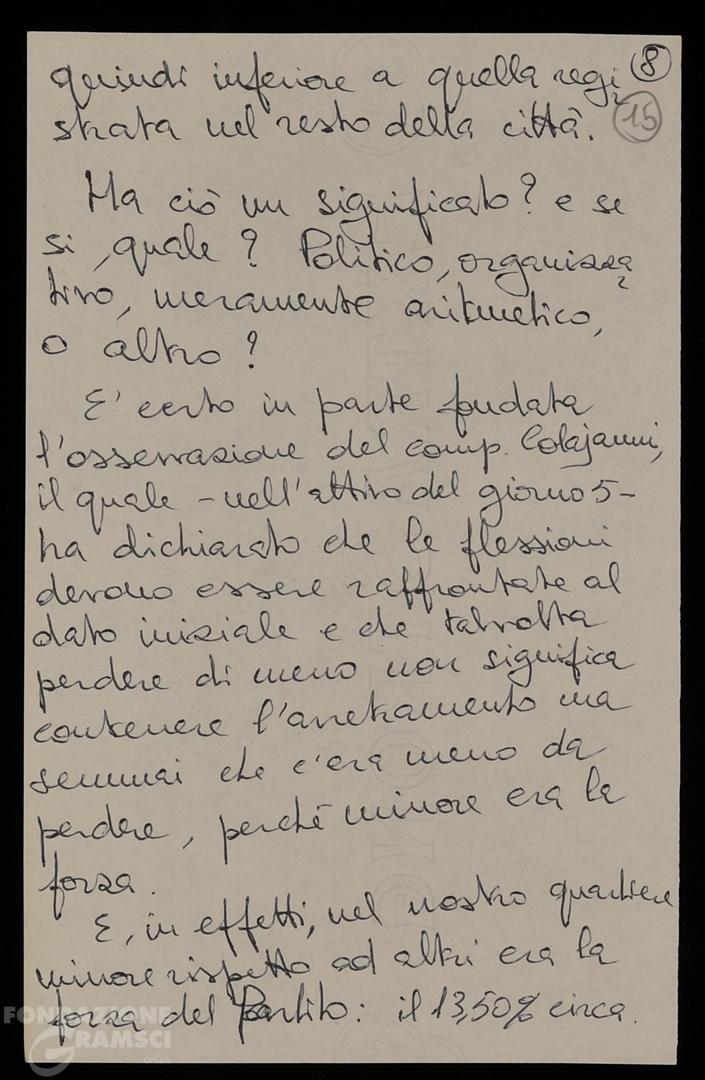 quindi inferiore a quella regi 8
strata nel resto della città. 15
Ha ciò un significato? e se
si, quale? Politico, organizza
tivo, meramente aritmetico,
o altro?
E' certo in parte fondata
l'osservazione del comp. Colajanni,
il quale - nell'attivo del giorno 5 -
ha dichiarato che le flessioni
devono essere raffrontate al
dato iniziale e che talvolta
perdere di meno non significa
contenere l'arretramento ma
semmai che c'era meno da
perdere, perchè minore era la
forza.
E, in effetti, nel nostro quartiere
minore rispetto ad altri era la
forza del Partito: il 13,50% circa.
FONDAZIONE
GRAMSCI
onlus